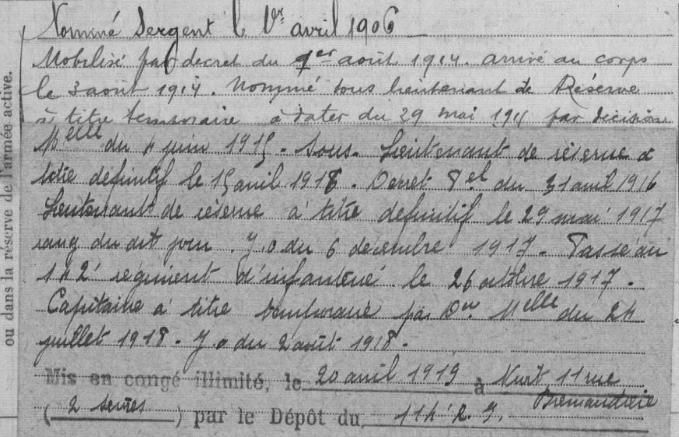 ou dans la réserve de l'armée active.
Nommé Sergent le 1er avril 1906
Mobilisé par decret du 1er août 1914. arrivé au corps
le 3 août 1914. Nommé sous lieutenant de Réserve
à titre temporaire à dater du 29 mai 1915 par décision
Melle du 4 juin 1915. Sous-Lieutenant de réserve à
titre definitif le 15 avril 1916. Decret Pel du 31 avril 1916
Lieutenant de réserve à titre definitif le 29 mai 1917
rang du dit jour. J.o du 6 decembre 1917. Passé au
142e regiment d'infanterie le 26 octobre 1917.
Capitaine à titre temporaire par Don Melle du 24
juillet 1918. J.o du 2 août 1918.
Mis en congé illimité, le 20 avril 1919 à 11 rue
( 2 ) par le Dépôt du 114e R.I.